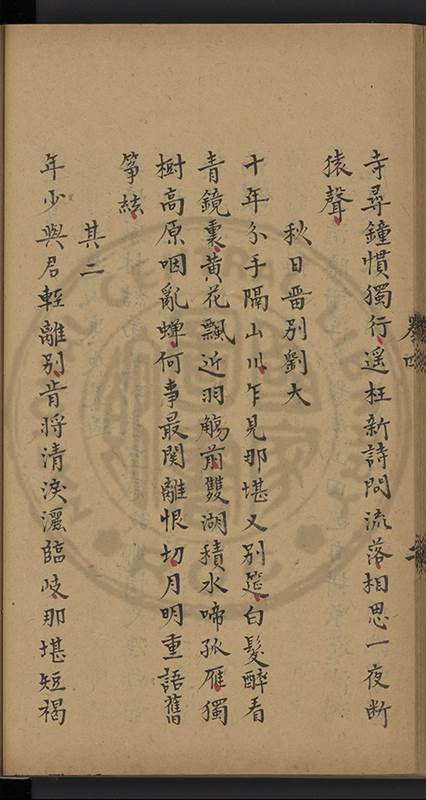 寺尋鐘慣獨行遥枉新詩問流落相思一夜断
猿聲
秋日畱别劉大
十年分手隔山川乍見那堪又别筵白髮醉看
青鏡裏黄花飄近羽觴前雙湖積水啼孤雁獨
樹高原咽亂蟬何事最関離恨切月明重語舊
筝絃
其二
年少與君輕離别肯將清淚灑臨歧那堪短褐